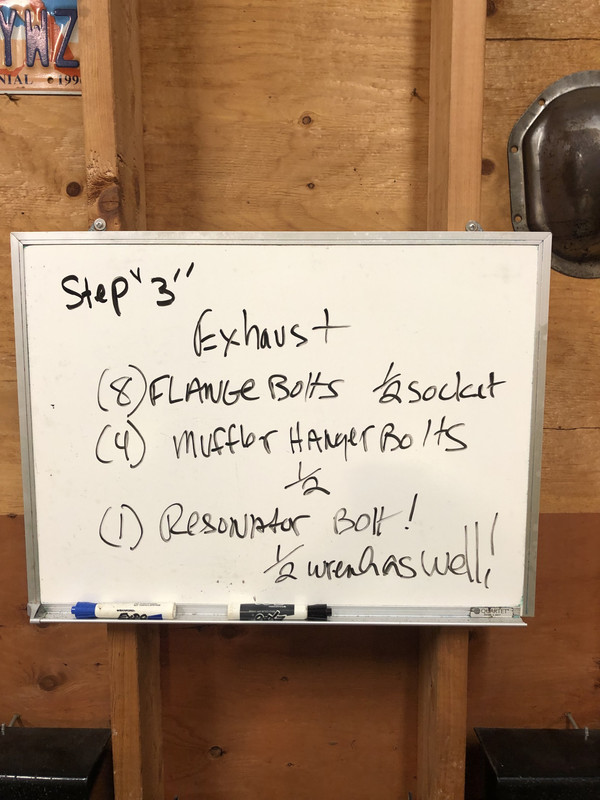 YWZ
NIAL © 199
Step "3"
Exhaust
(8) FLANGE Bolts 1/2 socket
(4) Muffler HANger Bolts
1/2
(1) Resonator Bolt!
1/2 wrench as well!
EXPO
QUARTET